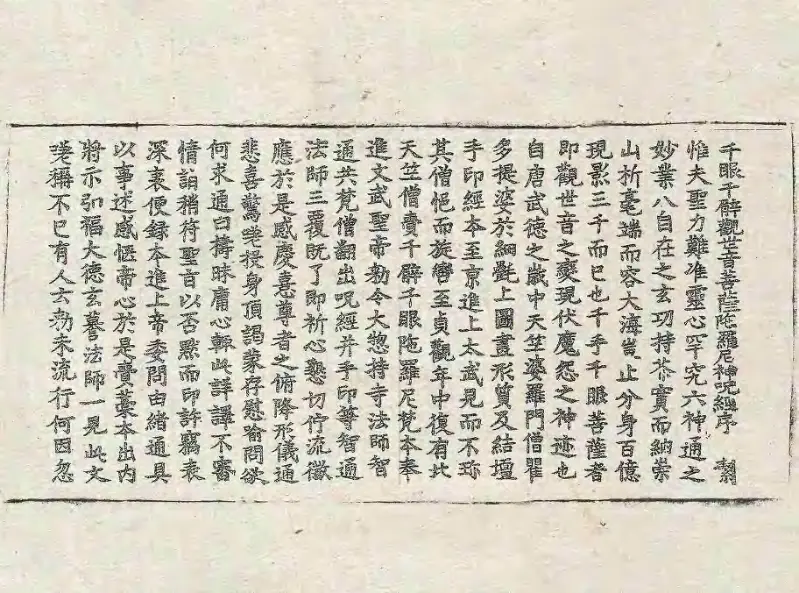 千眼千臂觀世音菩薩陁羅尼神呪經序
惟夫聖力難准靈心罕究六神通之
妙業八自在之玄功持芥實而納崇
山析毫端而容大海豈止分身百億
現影三千而已也千手千眼菩薩者
即觀世音之變現伏魔怨之神迹也
自唐武德之歲中天竺婆羅門僧瞿
多提婆於細氎上圖畫形質及結壇
手印經本至京進上太武見而不珎
其僧悒而旋轡至貞觀年中復有北
天竺僧賷千臂千眼陁羅尼梵本奉
進文武聖帝勅令大惣持寺法師智
通共梵僧翻出呪經并手印等智通
法師三覆既了即祈心懇切佇流徵
應於是感慶憙尊者之俯降形儀通
悲喜驚嗟投身頂謁蒙存慰喻問欲
何求通曰擣昧庸心輙此詳譯不審
情詣稍符聖旨以否默而印許竊表
深衷便錄本進上帝委問由緒通具
以事述感愜帝心於是賷藁本出內
將示弘福大德玄謩法師一見此文
嗟稱不已有人云勅未流行何因忽